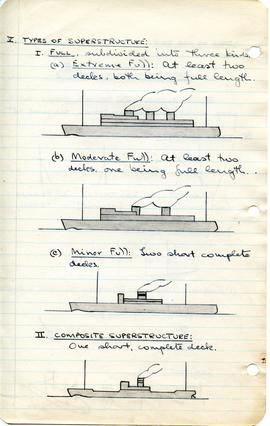 V. TYPES OF SUPERSTRUCTURE:
I. FULL, subdivided into three kinds
(a) Extreme Full: At least two
decks, both being full length.
(b) Moderate Full: At least two
decks, one being full length..
(c) Minor Full: Two short complete
decks.
II. COMPOSITE SUPERSTRUCTURE:
One short, complete deck.